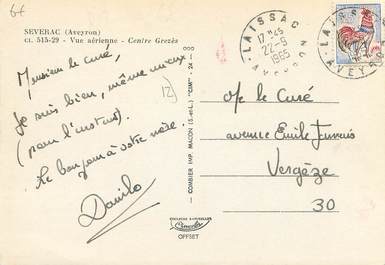 6f
SEVERAC (Aveyron)
CL. 515-29 - Vue aérienne - Centre Grezès
Monsieur le curé,
Je suis bien, même mieux
(pour l'instant).
Le bonjour à votre
Danilo
12
COMBIER IMP. MACON (S.-et-L.) "CIM" - 24
LAISSAC
17H45
22-9
1965
AVEYRON
M. le Curé
avenue Emile
Vergèze
30
OFFSET